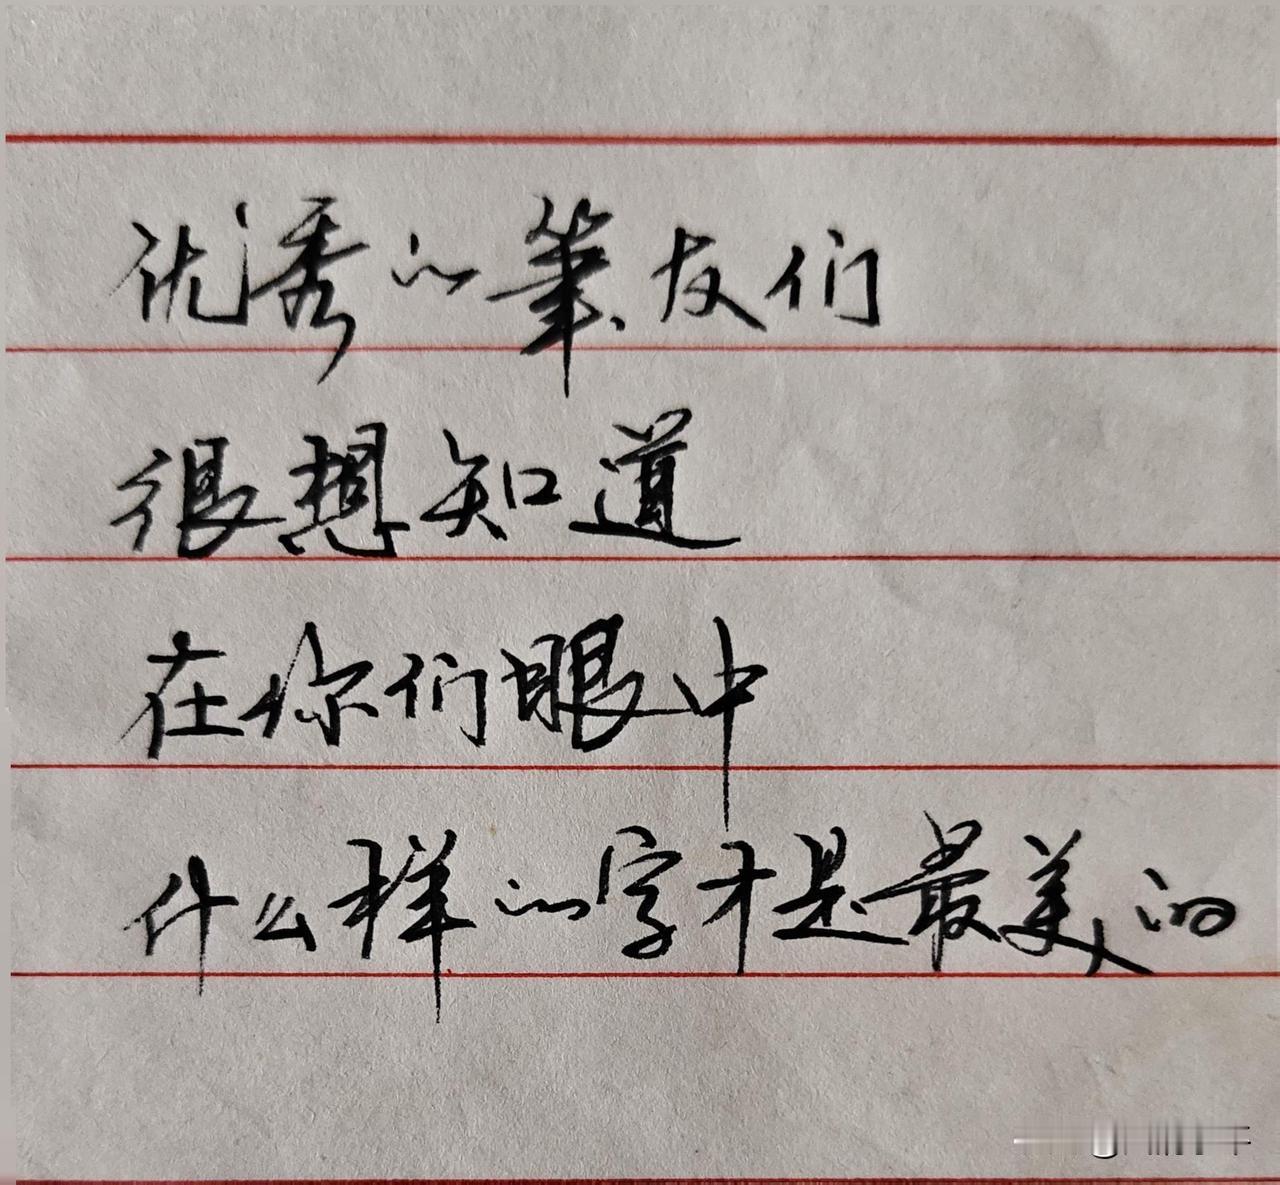 优秀的筆友们
很想知道
在你们眼中
什么样的字才是最美的